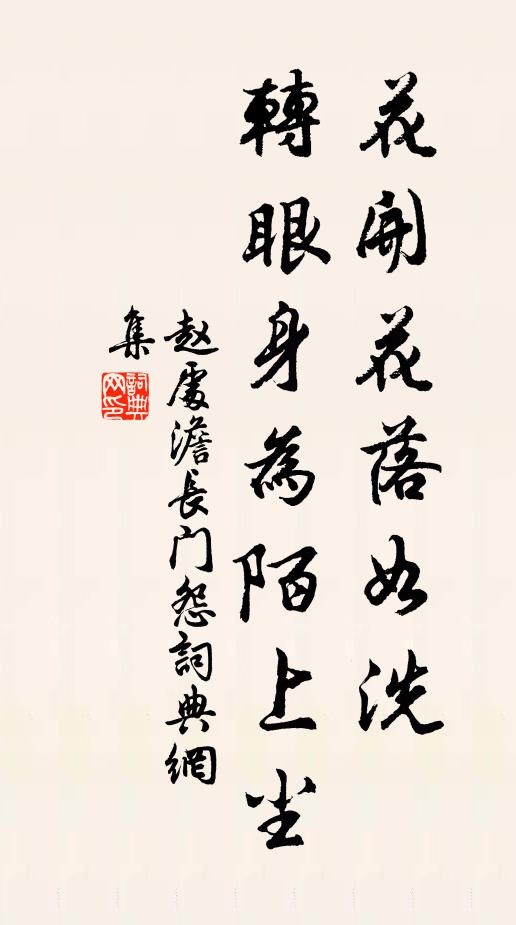 花開花落如洗
轉眼身為陌上尘
赵處澹長门怨詞典網
集
詞典
网印